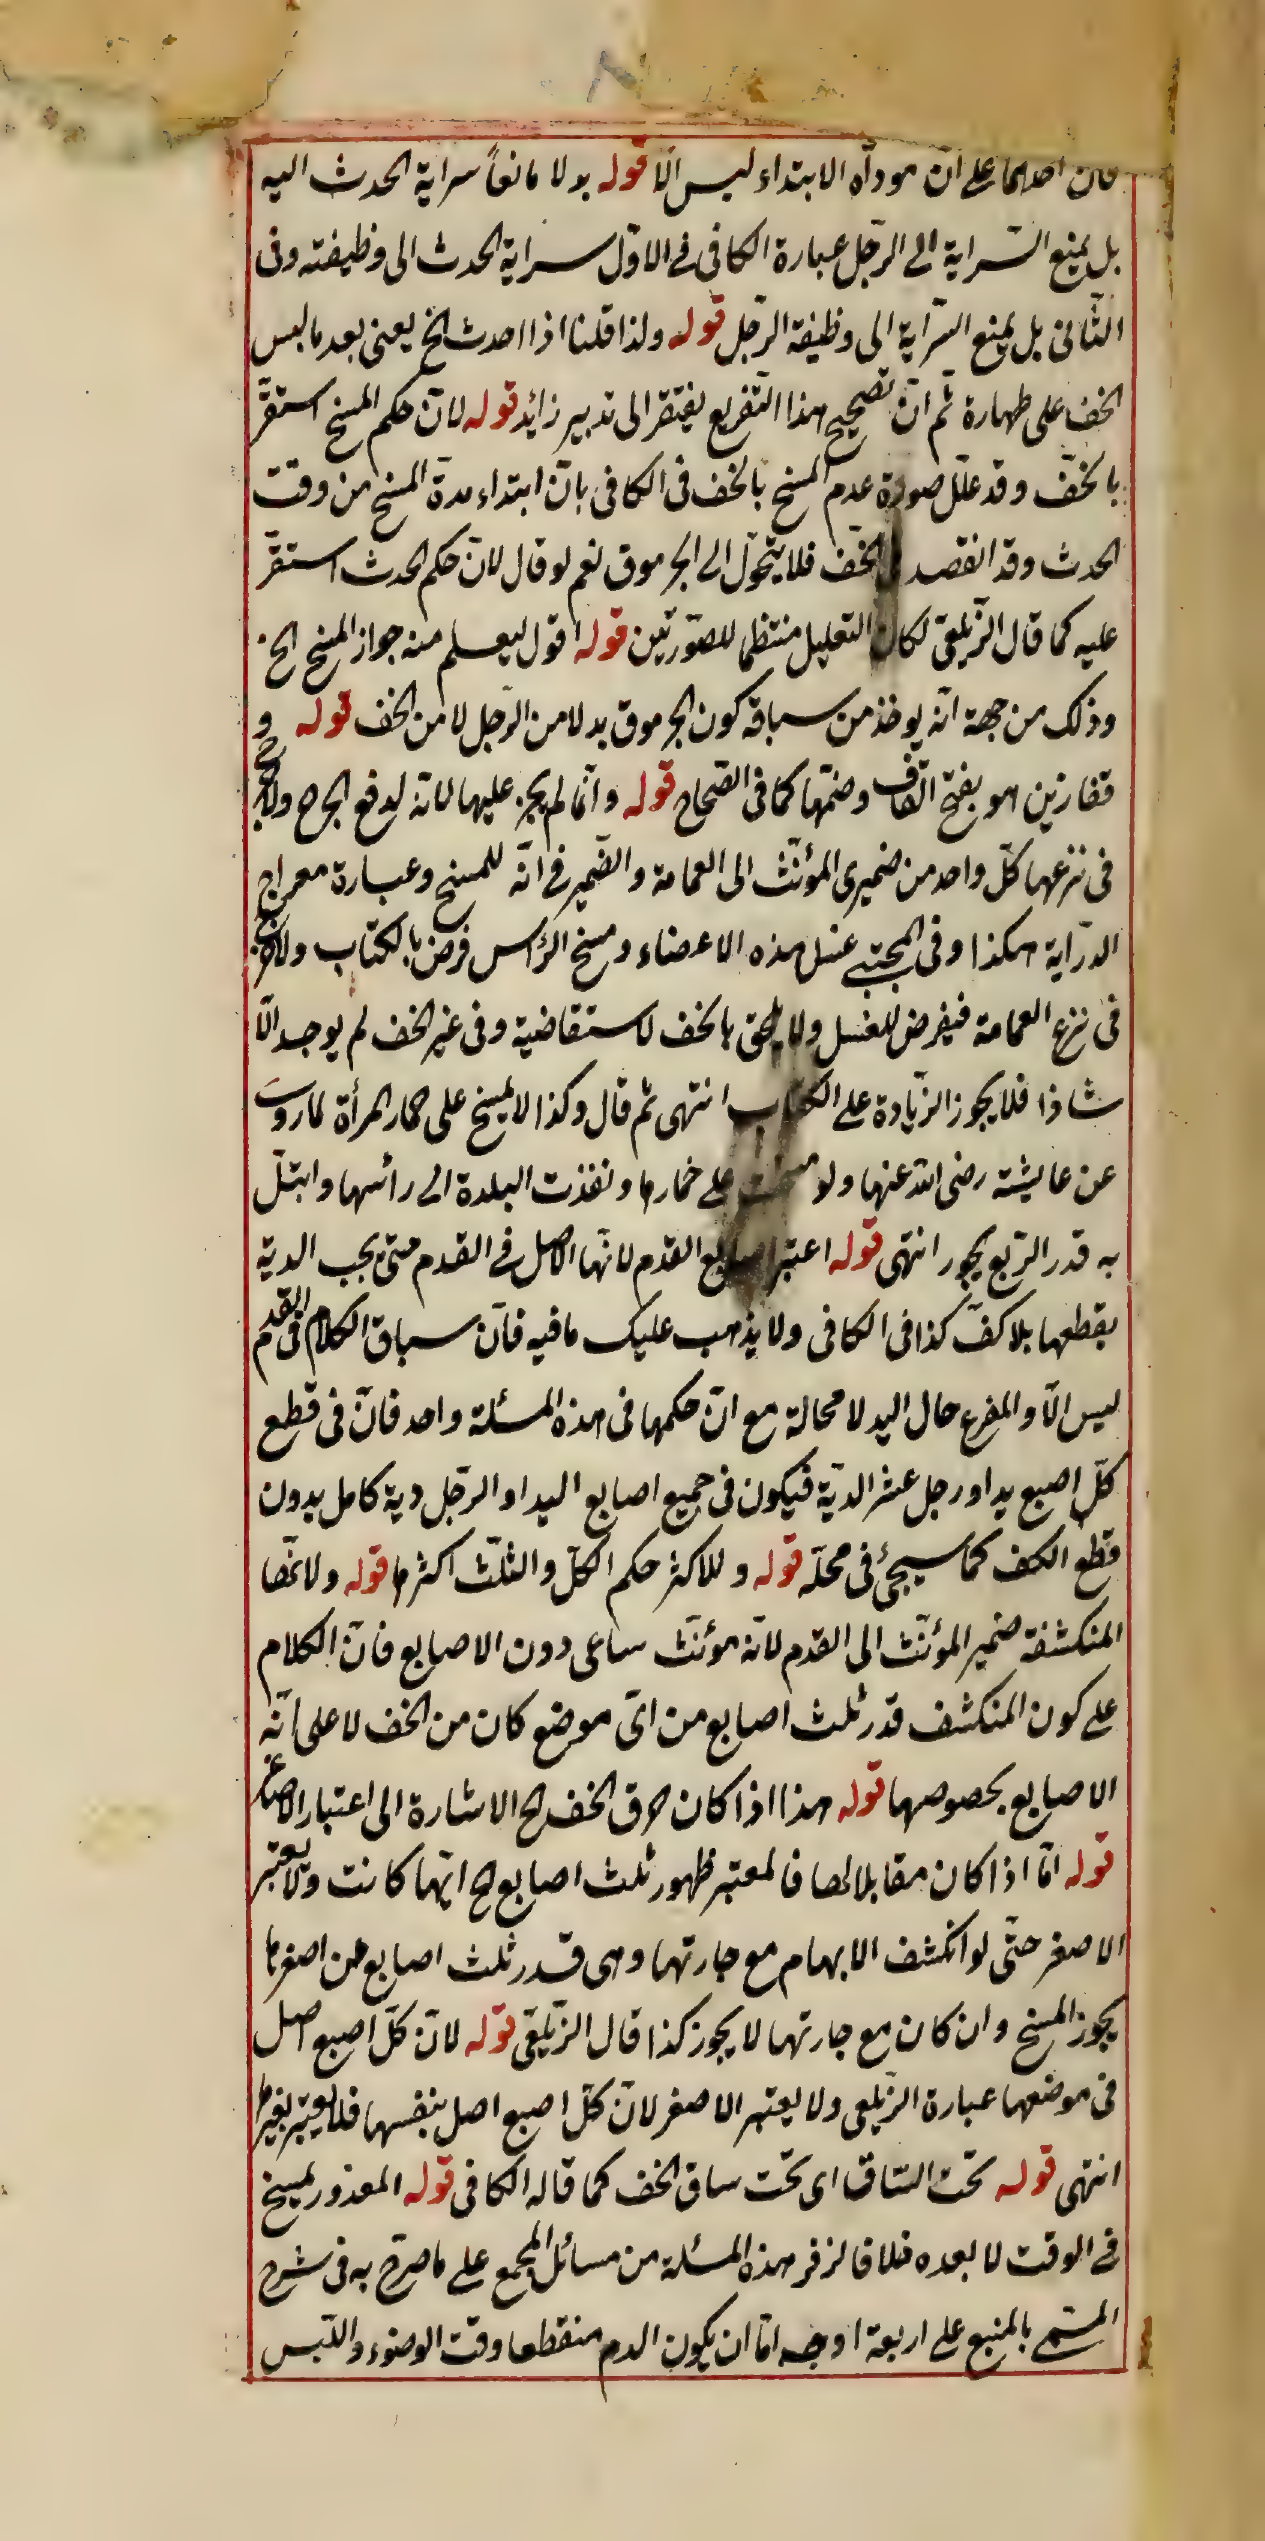 احدهما على ان موداه الابتداء ليس الا قوله بدلا مانعا سراية الحدث اليه
بل يمنع السراية الى الرجل عبارة الكافى فى الاول سراية الحدث الى وظيفته وفى
الثانى بل يمنع السراية الى وظيفة الرجل قوله ولذا قلنا اذا احدث الخ يعنى بعد ما لبس
الخف على طهارة ثم ان تصحيح هذا التفريع يفتقر الى تدبير زائد قوله لان حكم المسح استقر
بالخف وقد علل صورة عدم المسح بالخف فى الكافى بان ابتداء مدة المسح من وقت
الحدث وقد انفصد الخف فلا يتحول الى الجرموق نعم لو قال لان حكم الحدث استقر
عليه كما قال الزيلعى لكان التعليل منتظما للصورتين قوله اقول ليعلم منه جواز المسح الخ
وذلك من جهة انه يوخذ من سباقه كون الجرموق بدلا من الرجل لا من الخف قوله و
قفازين هو بفتح القاف وضمها كما فى الصحاح قوله وانما لم يجز عليها لانه لدفع الحرج ولا حرج
فى نزعها كل واحد من ضميرى المؤنث الى العمامة والضمير فى انه للمسح وعبارة معراج
الدراية هكذا وفى المجتبى غسل هذه الاعضاء ومسح الرأس فرض بالكتاب ولا حرج
فى نزع العمامة فيفرض للغسل ولا يلحق بالخف لاستقاضية وفى غير الخف لم يوجد الا
شاذا فلا يجوز الزيادة على الكتاب انتهى ثم قال وكذا لا يمسح على خمار المرأة لما روى
عن عايشة رضى الله عنها ولو مسحت على خمارها ونفذت البلدة الى رأسها وابتل
به قدر الربع يجوز انتهى قوله اعتبر اصابع القدم لانها الاصل فى القدم حتى يجب الدية
بقطعها بلا كف كذا فى الكافى ولا يذهب عليك ما فيه فان سباق الكلام فى القدم
ليس الا والمفرع حال اليد لا محالة مع ان حكمها فى هذه المسئلة واحد فان فى قطع
كل اصبع يد او رجل عشر الدية فيكون فى جميع اصابع اليد او الرجل دية كامل بدون
قطع الكف كما سيجئ فى محله قوله وللاكثر حكم الكل والثلث اكثرها قوله ولا نخصا
المنكشفة ضمير المؤنث الى القدم لانه مؤنث ساعى دون الاصابع فان الكلام
على كون المنكشف قدر ثلث اصابع من اى موضع كان من الخف لا على انه
الاصابع بخصوصها قوله هذا اذا كان خرق الخف الخ الاشارة الى اعتبار الاصاغر
قوله اما اذا كان مقابلا لها فالمعتبر ظهور ثلث اصابع الخ ايها كانت ولا يعتبر
الاصغر حتى لو انكشف الابهام مع جارتها وهى قدر ثلث اصابع من اصغرها
يجوز المسح وان كان مع جارتها لا يجوز كذا قال الزيلعى قوله لان كل اصبع اصل
فى موضعها عبارة الزيلعى ولا يعتبر الاصغر لان كل اصبع اصل بنفسها فلا يعتبر بغيرها
انتهى قوله تحت الساق اى تحت ساق الخف كما قاله الكافى قوله المعذور يمسح
فى الوقت لا بعده خلافا لزفر هذه المسئلة من مسائل المجمع على ما صرح به فى شرح
المسمى بالمنبع على اربعة اوجه اما ان يكون الدم منقطعا وقت الوضوء واللبس